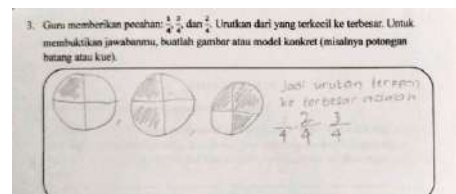 3. Guru memberikan pecahan: 1/4, 3/4, dan 2/4. Urutkan dari yang terkecil ke terbesar. Untuk
membuktikan jawabanmu, buatlah gambar atau model konkret (misalnya potongan
batang atau kue).
Jadi urutan terkecil
ke terbesar adalah
1/4 2/4 3/4